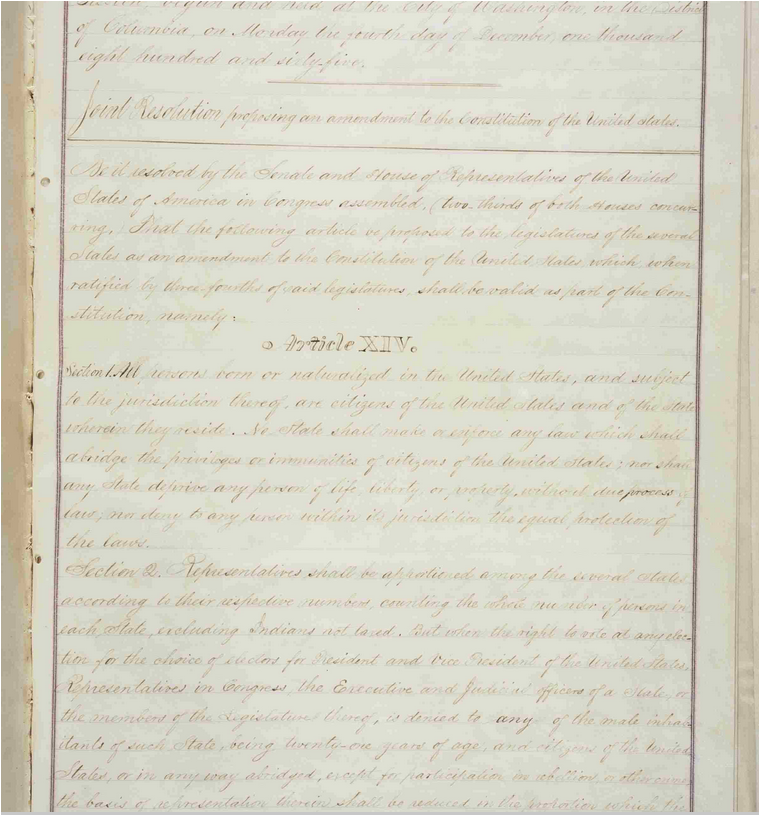 Session, begun and held at the City of Washington, in the District
of Columbia, on Monday the fourth day of December, one thousand
eight hundred and sixty-five.
Joint Resolution proposing an amendment to the Constitution of the United States.
Be it resolved by the Senate and House of Representatives of the United
States of America in Congress assembled, (two-thirds of both Houses concur-
ring,) That the following article be proposed to the legislatures of the several
States as an amendment to the Constitution of the United States, which, when
ratified by three-fourths of said legislatures, shall be valid as part of the Con-
stitution, namely:
Article XIV.
Section 1. All persons born or naturalized in the United States, and subject
to the jurisdiction thereof, are citizens of the United States and of the State
wherein they reside. No State shall make or enforce any law which shall
abridge the privileges or immunities of citizens of the United States; nor shall
any State deprive any person of life, liberty, or property, without due process of
law, nor deny to any person within its jurisdiction the equal protection of
the laws.
Section 2. Representatives shall be apportioned among the several States
according to their respective numbers, counting the whole number of persons in
each State, excluding Indians not taxed. But when the right to vote at any elec-
tion for the choice of electors for President and Vice President of the United States,
Representatives in Congress, the Executive and Judicial officers of a State, or
the members of the Legislature thereof, is denied to any of the male inhab-
itants of such State, being twenty-one years of age, and citizens of the United
States, or in any way abridged, except for participation in rebellion, or other crime,
the basis of representation therein shall be reduced in the proportion which the